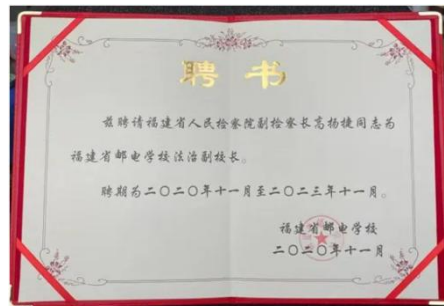 聘书
兹聘请福建省人民检察院副检察长高扬捷同志为
福建省邮电学校法治副校长。
聘期为二〇二〇年十一月至二〇二三年十一月。
福建省邮电学校
二〇二〇年十一月